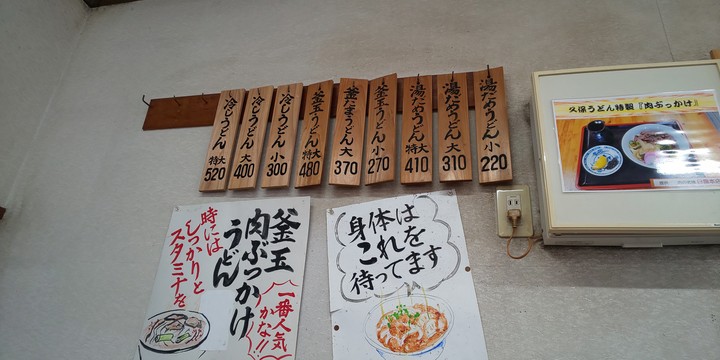 冷しうどん 特大 520
冷しうどん 大 400
冷しうどん 小 300
釜玉うどん 特大 480
釜たまうどん 大 370
釜玉うどん 小 270
湯だめうどん 特大 410
湯だめうどん 大 310
湯だめうどん 小 220
久保うどん特製『肉ぶっかけ』
釜玉
肉ぶっかけ
うどん
時には
しっかりと
スタミナを
一番人気
かな!!
身体は
これを
待ってます